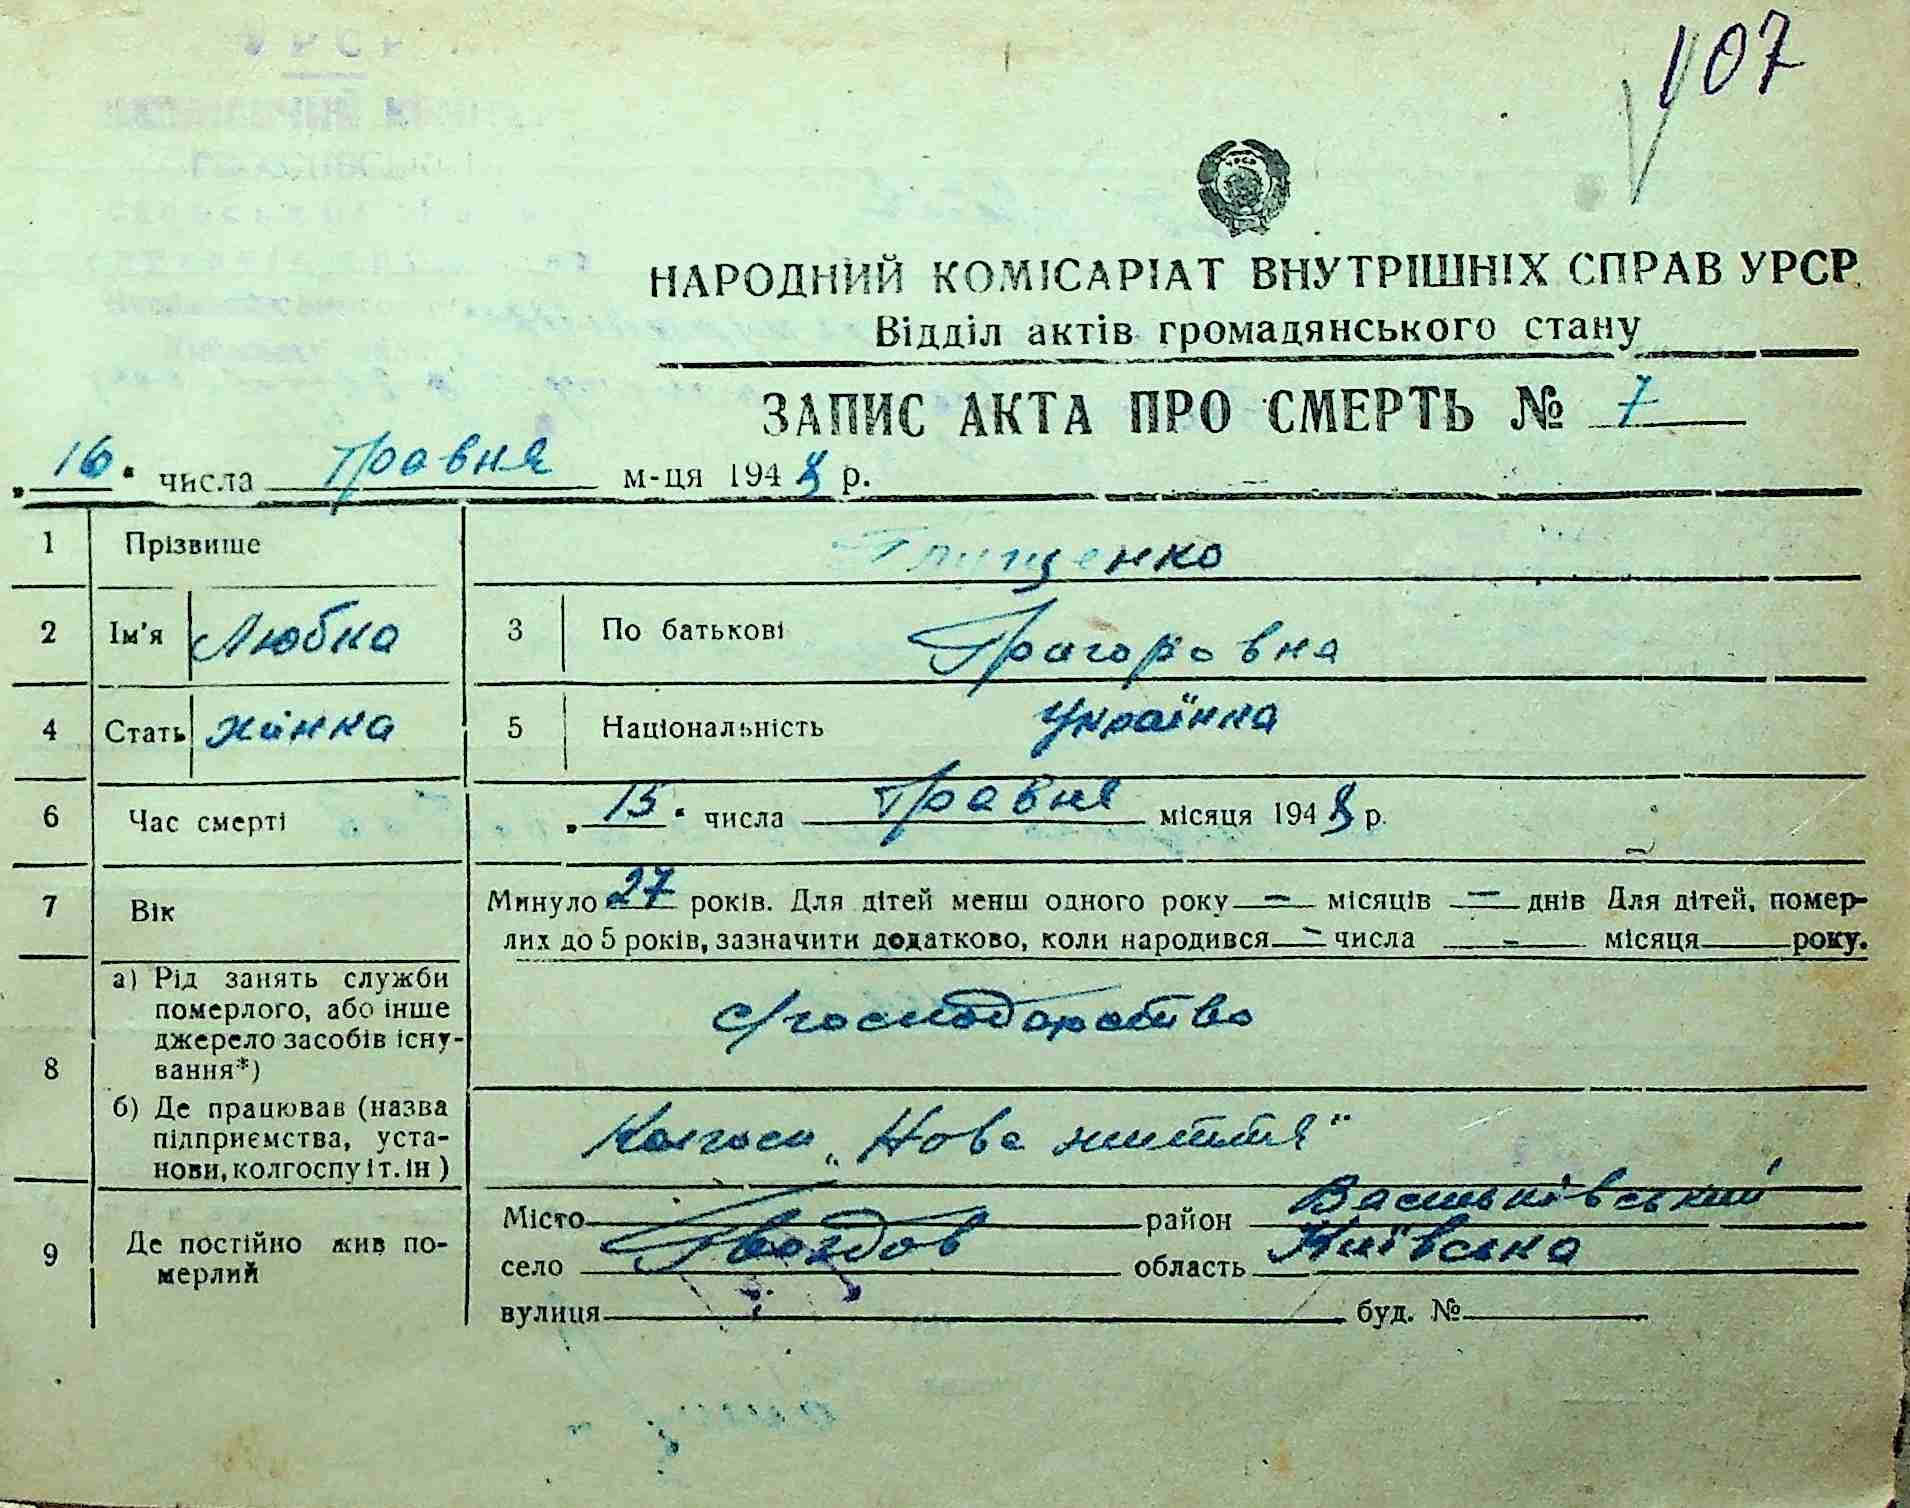 107
НАРОДНИЙ КОМІСАРІАТ ВНУТРІШНІХ СПРАВ УРСР
Відділ актів громадянського стану
ЗАПИС АКТА ПРО СМЕРТЬ № 7
„16“ числа травня м-ця 1948 р.
1 Прізвище Грищенко
2 Ім'я Любка 3 По батькові Григоровна
4 Стать жінка 5 Національність українка
6 Час смерті „15“ числа травня місяця 1948 р.
7 Вік Минуло 27 років. Для дітей менш одного року — місяців — днів Для дітей, помер-
лих до 5 років, зазначити додатково, коли народився — числа — місяця року.
8 а) Рід занять служби
померлого, або інше
джерело засобів існу-
вання*)
с/господарство
б) Де працював (назва
підприємства, уста-
нови, колгоспу і т. ін)
Колгосп „Нове життя“
9 Де постійно жив по-
мерлий
Місто район Васильківський
село Гвоздов область Київська
вулиця буд. №